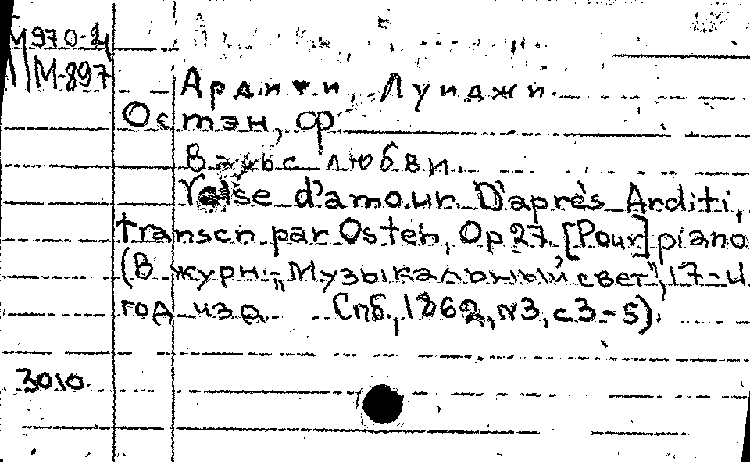 М970-4
М-897
Ардити, Луиджи.
Остэн, ф
Вальс любви.
Valse d'amour D'après Arditi,
transcr par Osten, Op 27. [Pour] piano
(В журн. „Музыкальный свет", 17-й
год изд Спб., 1862, №3, с 3-5).
3010.